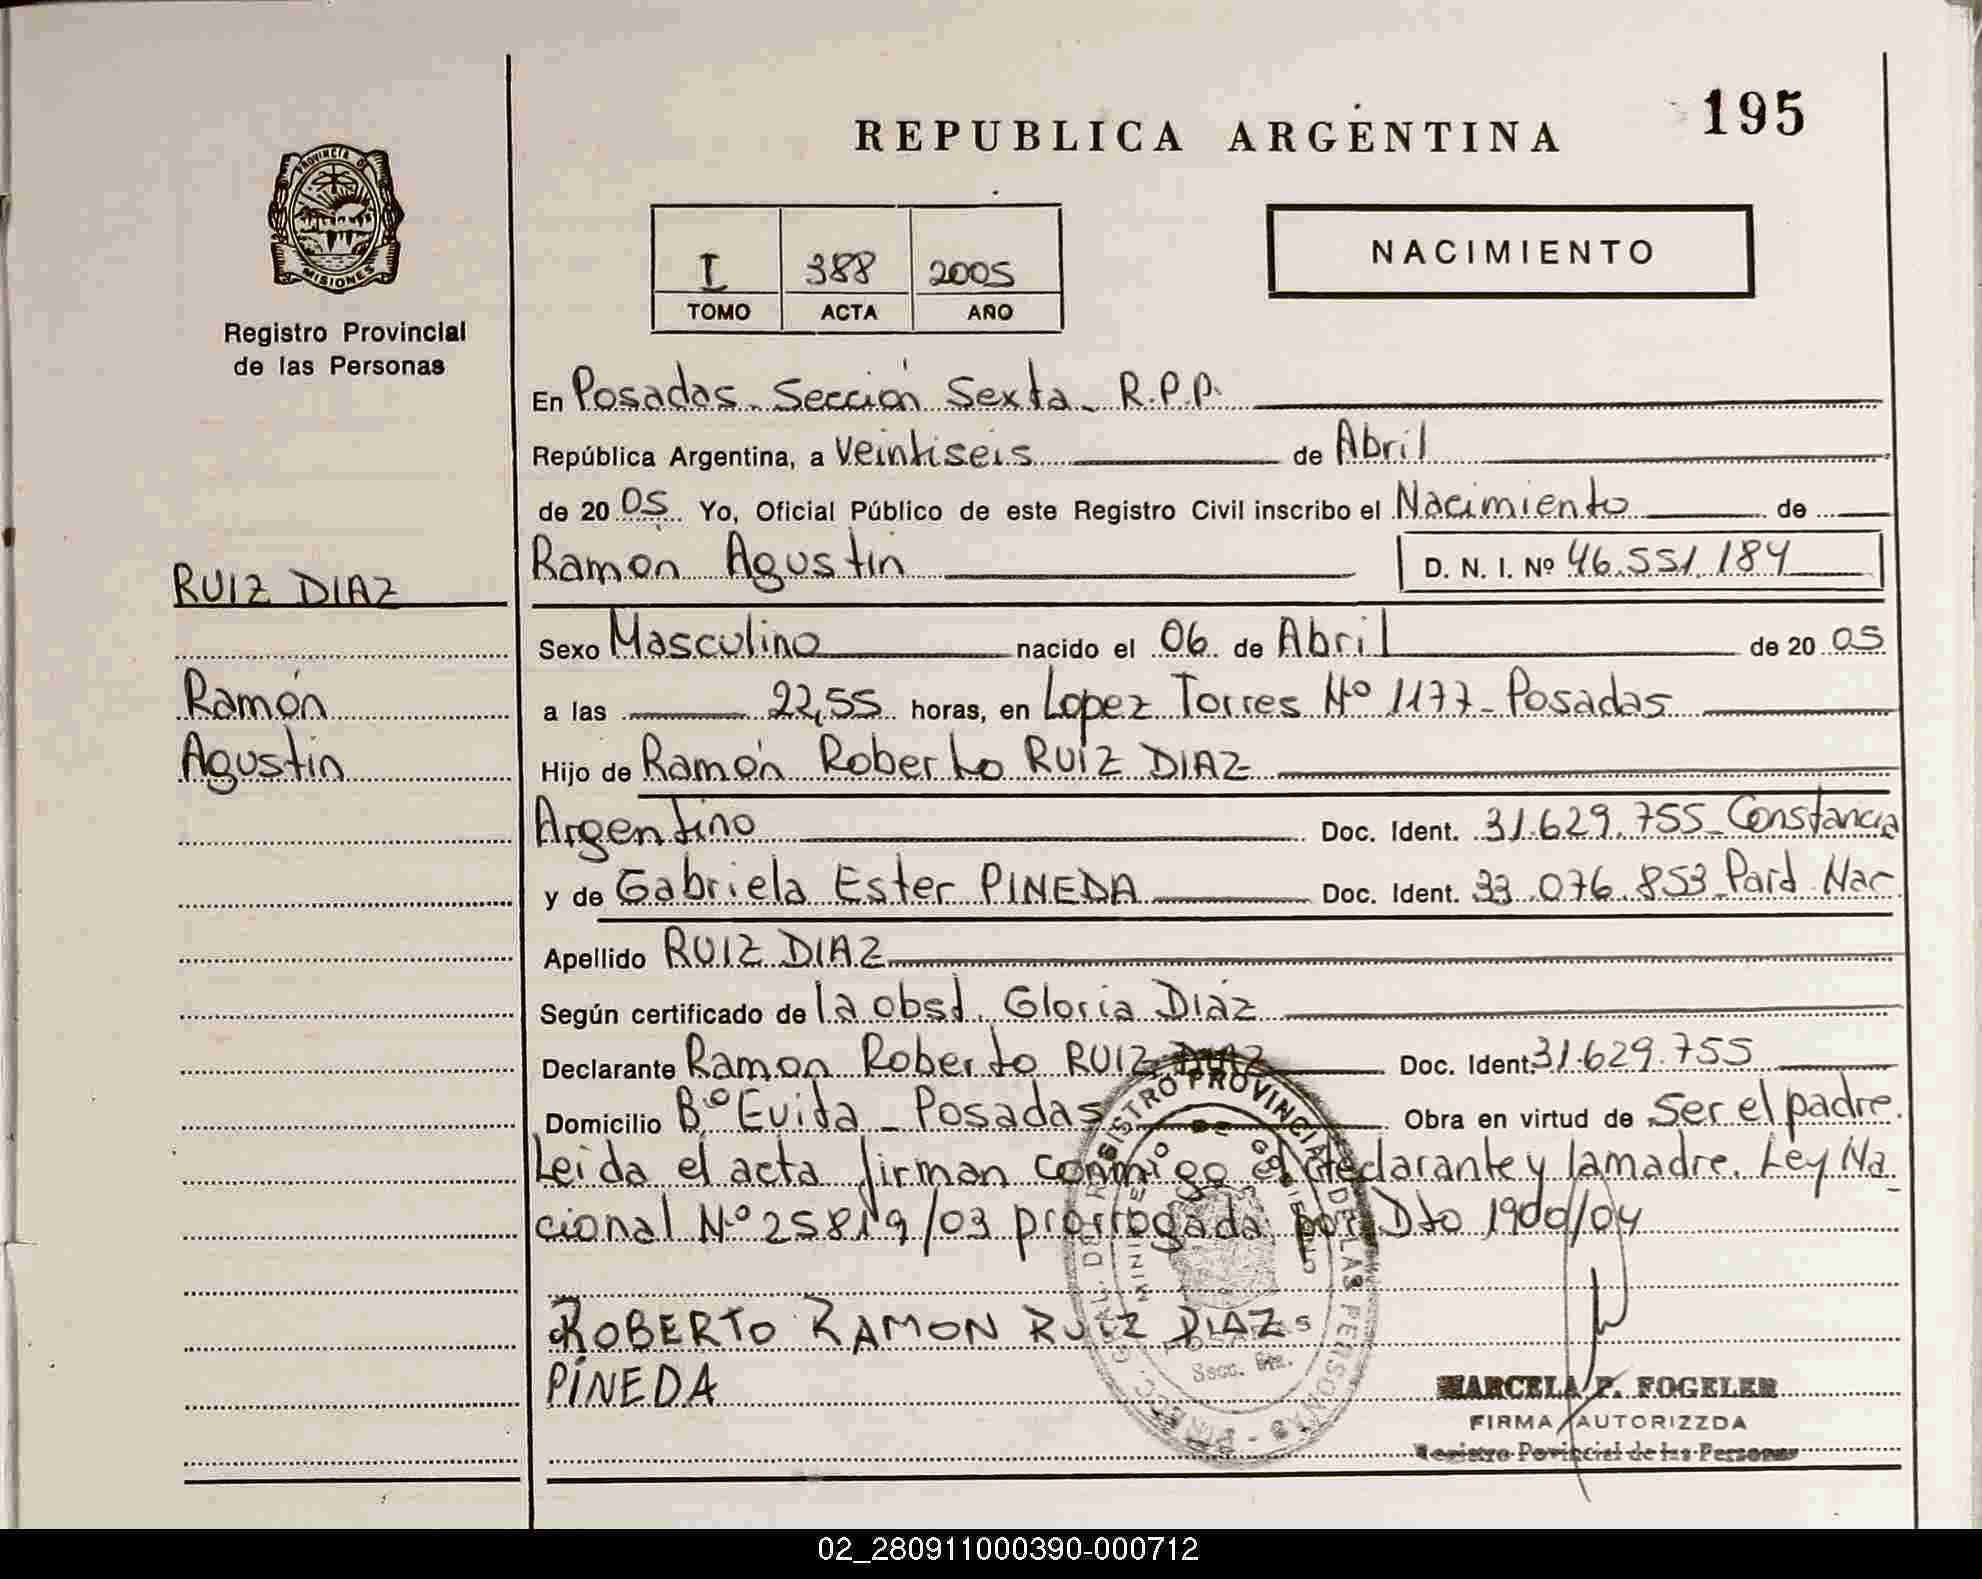 195
REPUBLICA ARGENTINA
PROVINCIA DE
MISIONES
Registro Provincial
de las Personas
NACIMIENTO
I 388 2005
TOMO ACTA AÑO
En Posadas - Sección Sexta - R.P.P.
República Argentina, a Veintiseis de Abril
de 20 05 Yo, Oficial Público de este Registro Civil inscribo el Nacimiento de
Ramon Agustin D. N. I. Nº 46.551.184
RUIZ DIAZ
Ramón
Agustin
Sexo Masculino nacido el 06 de Abril de 20 05
a las 22,55 horas, en Lopez Torres Nº 1177 - Posadas
Hijo de Ramón Roberto RUIZ DIAZ
Argentino Doc. Ident. 31.629.755 - Constancia
y de Gabriela Ester PINEDA Doc. Ident. 33.076.853 - Nac.
Apellido RUIZ DIAZ
Según certificado de la obst. Gloria Diaz
Declarante Ramon Roberto RUIZ DIAZ Doc. Ident. 31.629.755
Domicilio Bº Evita - Posadas Obra en virtud de Ser el padre.
Leida el acta firman conmigo el declarante y la madre. Ley Na_
cional Nº 25819/03 prorrogada por Dto 1900/04
ROBERTO RAMON RUIZ DIAZ
PINEDA
REGISTRO PROVINCIAL DE LAS PERSONAS
Secc. 6ta.
MARCELA P. FOGELER
FIRMA AUTORIZZDA
Registro Povincial de las Personas
02_280911000390-000712